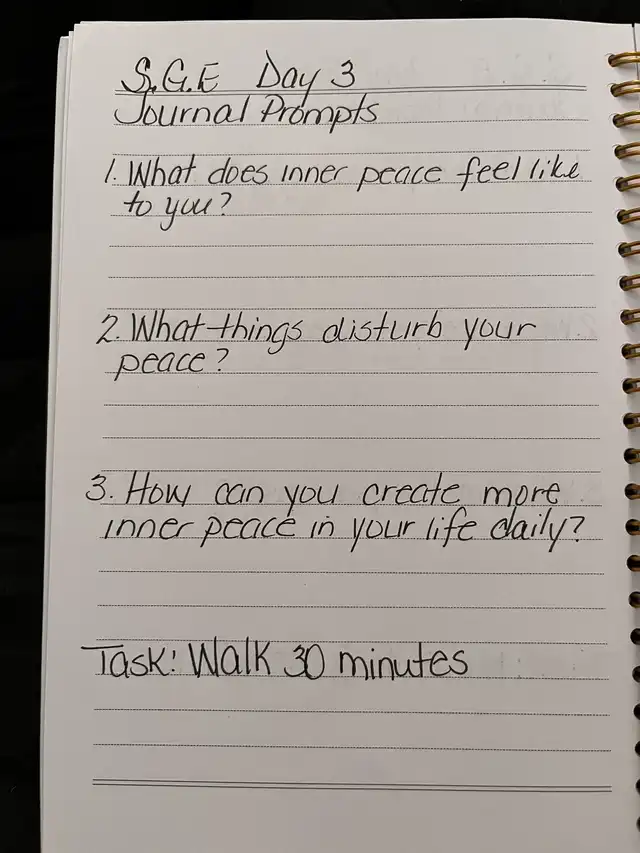 S.G.E Day 3
Journal Prompts
1. What does inner peace feel like
to you?
2. What things disturb your
peace?
3. How can you create more
inner peace in your life daily?
Task: Walk 30 minutes